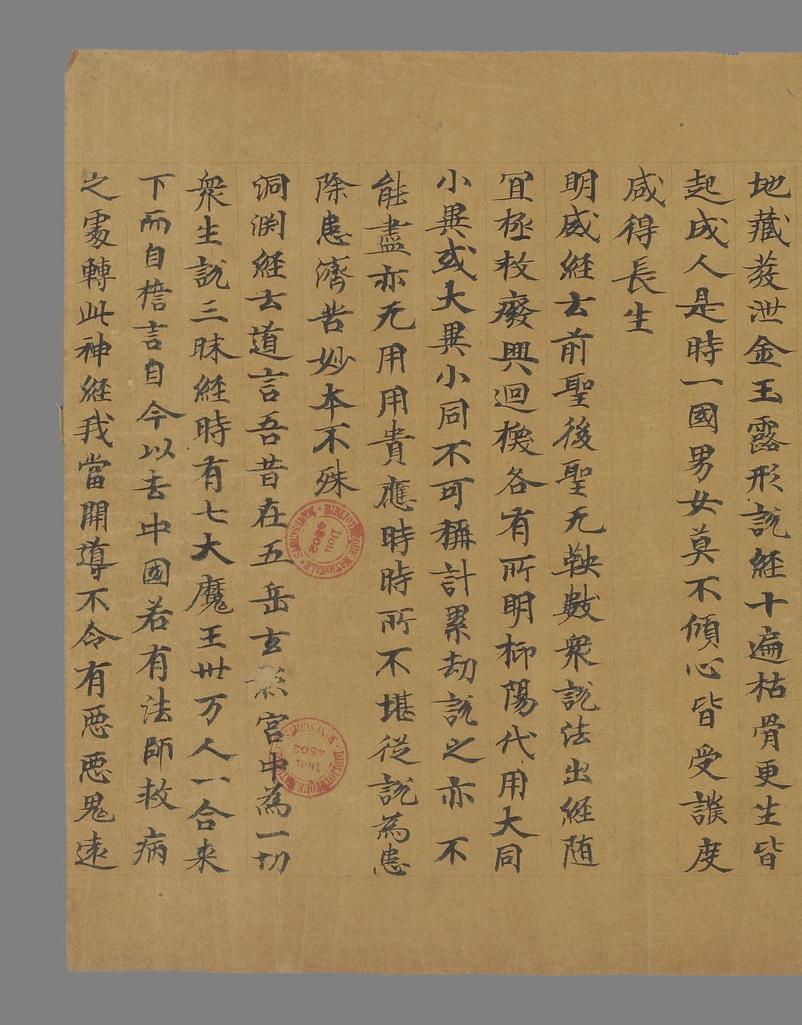 地藏發泄金玉露形說經十遍枯骨更生皆
起成人是時一國男女莫不傾心皆受護度
咸得長生
明威經云前聖後聖无鞅數衆說法出經随
冝極救癈興迴樓各有所明柳陽代用大同
小異或大異小同不可稱計累劫說之亦不
能盡亦无用用貴應時時所不堪從說為患
除患濟苦妙本不殊
洞渕經云道言吾昔在五岳玄 宮中為一切
衆生說三昧經時有七大魔王卅万人一合来
下而自㯼言自今以去中國若有法師救病
之處轉此神經我當開導不令有惡惡鬼速
BIBLIOTHÈQUE NATIONALE MANUSCRITS
Don 4502
BIBLIOTHÈQUE NATIONALE MANUSCRITS
Don 4502